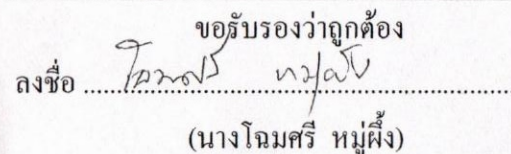 ขอรับรองว่าถูกต้อง
ลงชื่อ ........โฉมศรี หมู่ผึ้ง........
(นางโฉมศรี หมู่ผึ้ง)